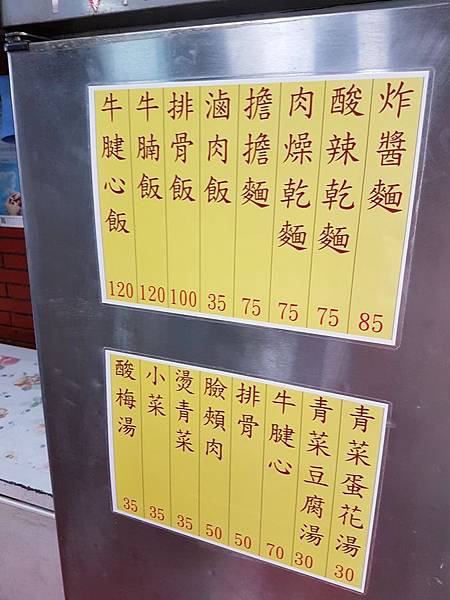 炸醬麵 85
酸辣乾麵 75
肉燥乾麵 75
擔擔麵 75
滷肉飯 35
排骨飯 100
牛腩飯 120
牛腱心飯 120
青菜蛋花湯 30
青菜豆腐湯 30
牛腱心 70
排骨 50
臉頰肉 50
燙青菜 35
小菜 35
酸梅湯 35